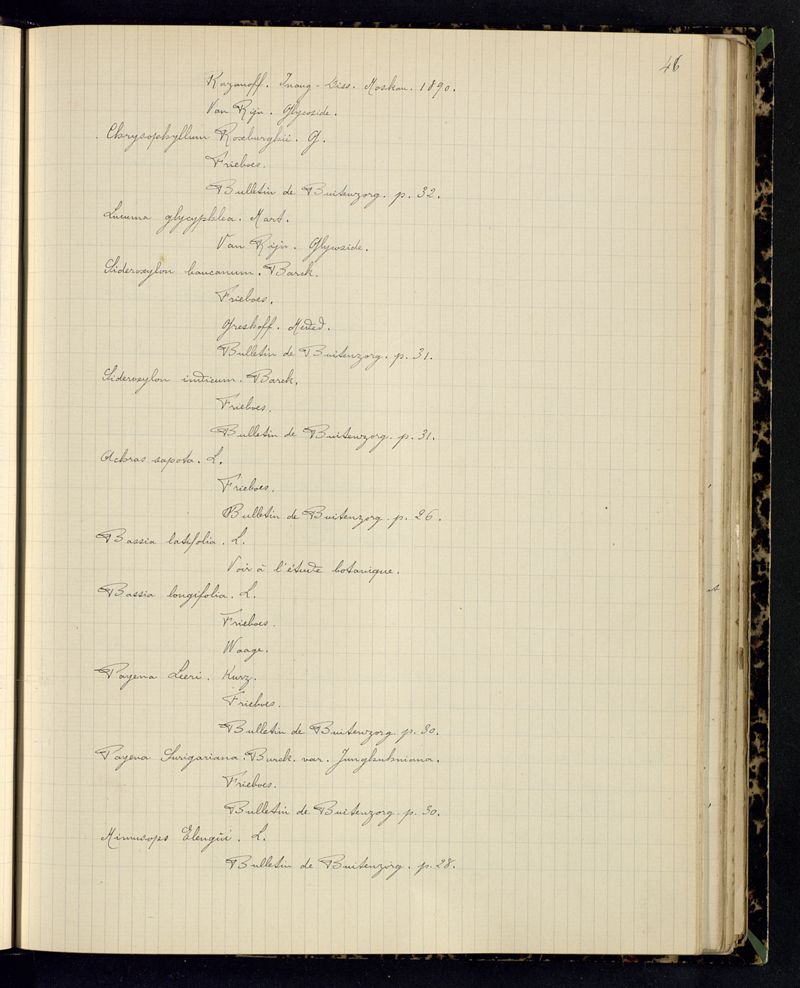 46
Kazanoff. Inaug-Diss. Moskau. 1890.
Van Rijn. Glycoside.
Chrysophyllum Roxburghii. G.
Frieboes.
Bulletin de Buitenzorg. p. 32.
Lucuma glycyphlea. Mart.
Van Rijn. Glycoside.
Sideroxylon bancanum. Barck.
Frieboes.
Greshoff. Meded.
Bulletin de Buitenzorg. p. 31.
Sideroxylon indicum. Barck.
Frieboes.
Bulletin de Buitenzorg. p. 31.
Achras sapota. L.
Frieboes.
Bulletin de Buitenzorg. p. 26.
Bassia latifolia. L.
Voir à l'étude botanique.
Bassia longifolia. L.
Frieboes.
Waage.
Payena Leeri. Kurz.
Frieboes.
Bulletin de Buitenzorg. p. 30.
Payena Surigariana. Burck. var. Junghuhniana.
Frieboes.
Bulletin de Buitenzorg. p. 30.
Mimusops Elengii. L.
Bulletin de Buitenzorg. p. 28.